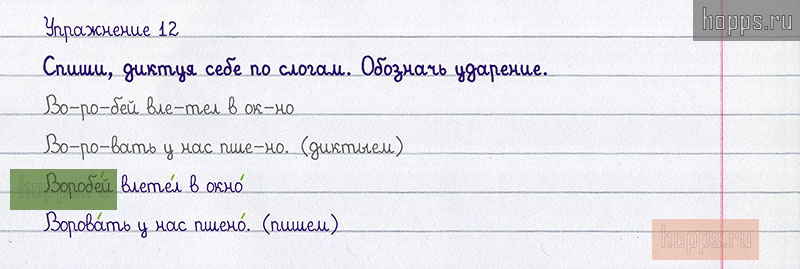 hopps.ru
Упражнение 12
Спиши, диктуя себе по слогам. Обозначь ударение.
Во-ро-бей вле-тел в ок-но
Во-ро-вать у нас пше-но. (диктыем)
Воробе́й влете́л в окно́
Ворова́ть у нас пшено́. (пишем)
hopps.ru